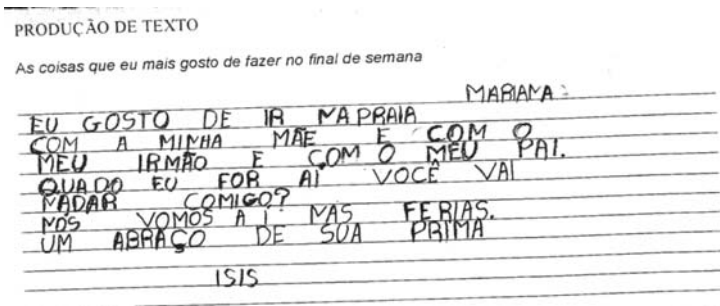 PRODUÇÃO DE TEXTO
As coisas que eu mais gosto de fazer no final de semana
MARIANA:
EU GOSTO DE IR NA PRAIA
COM A MINHA MÃE E COM O
MEU IRMÃO E COM O MEU PAI.
QUADO EU FOR AÍ VOCÊ VAI
NADAR COMIGO?
NÓS VOMOS AÍ NAS FERIAS.
UM ABRAÇO DE SUA PRIMA
ISIS